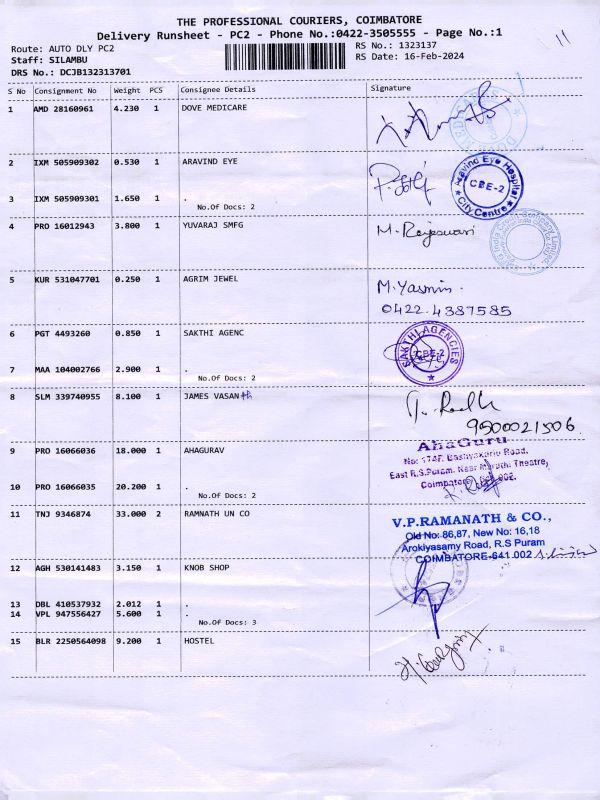 THE PROFESSIONAL COURIERS, COIMBATORE
Delivery Runsheet - PC2 - Phone No.:0422-3505555 - Page No.:1
11
Route: AUTO DLY PC2
RS No.: 1323137
Staff: SILAMBU
RS Date: 16-Feb-2024
DRS No.: DCJB132313701
S No Consignment No Weight PCS Consignee Details Signature
1 AMD 28160961 4.230 1 DOVE MEDICARE
2 IXM 505909302 0.530 1 ARAVIND EYE
Aravind Eye Hospital
CBE-2
★ City Centre ★
3 IXM 505909301 1.650 1 .
No.Of Docs: 2
4 PRO 16012943 3.800 1 YUVARAJ SMFG
M. Rajeswari
5 KUR 531047701 0.250 1 AGRIM JEWEL
M. Yasmin.
0422.4387585
6 PGT 4493260 0.850 1 SAKTHI AGENC
SAKTHI AGENCIES
CBE-2
7 MAA 104002766 2.900 1 .
No.Of Docs: 2
8 SLM 339740955 8.100 1 JAMES VASANth
9500021506
9 PRO 16066036 18.000 1 AHAGURAV
AhaGuru
No: 174F, Bashyakarlu Road,
East R.S.Puram, Near Maruthi Theatre,
10 PRO 16066035 20.200 1 .
No.Of Docs: 2
11 TNJ 9346874 33.000 2 RAMNATH UN CO
V.P.RAMANATH & CO.,
Old No: 86,87, New No: 16,18
Arokiyasamy Road, R.S Puram
COIMBATORE-641.002
12 AGH 530141483 3.150 1 KNOB SHOP
13 DBL 410537932 2.012 1 .
14 VPL 947556427 5.600 1 .
No.Of Docs: 3
15 BLR 2250564098 9.200 1 HOSTEL